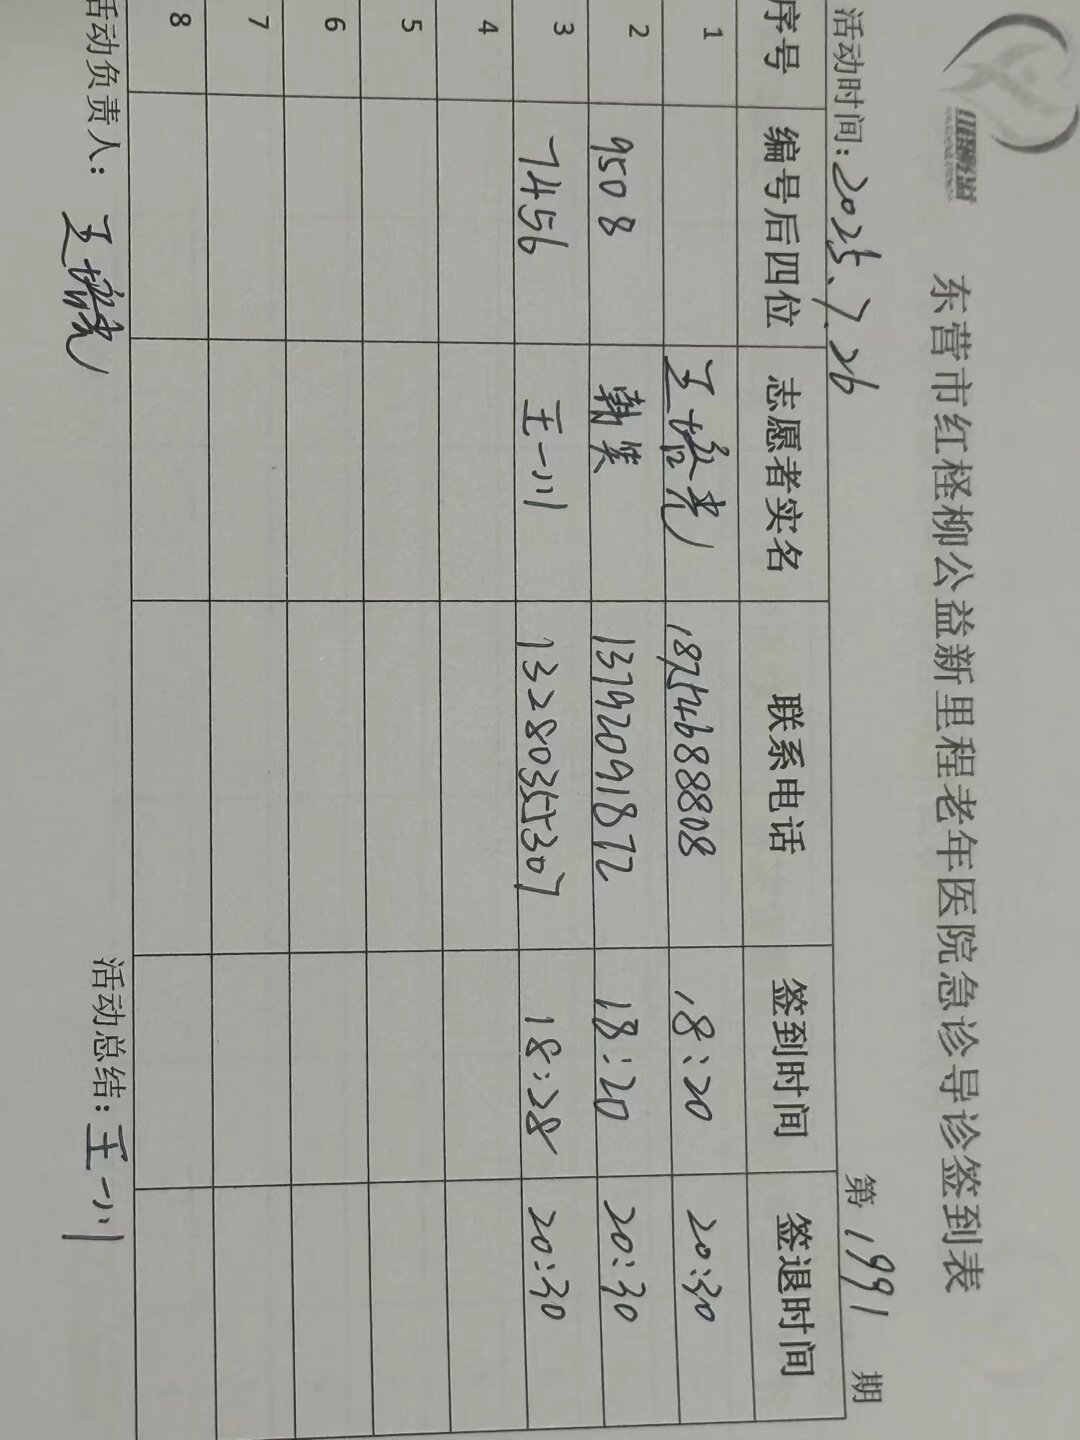 东营市红柽柳公益新里程老年医院急诊导诊签到表
活动时间：2025.7.26 第1991期
序号 编号后四位 志愿者实名 联系电话 签到时间 签退时间
1 王培亮 18254688808 18:20 20:30
2 9508 13792091872 18:20 20:30
3 7456 王一川 13280355307 18:28 20:30
4
5
6
7
8
活动负责人：王培亮 活动总结：王一川